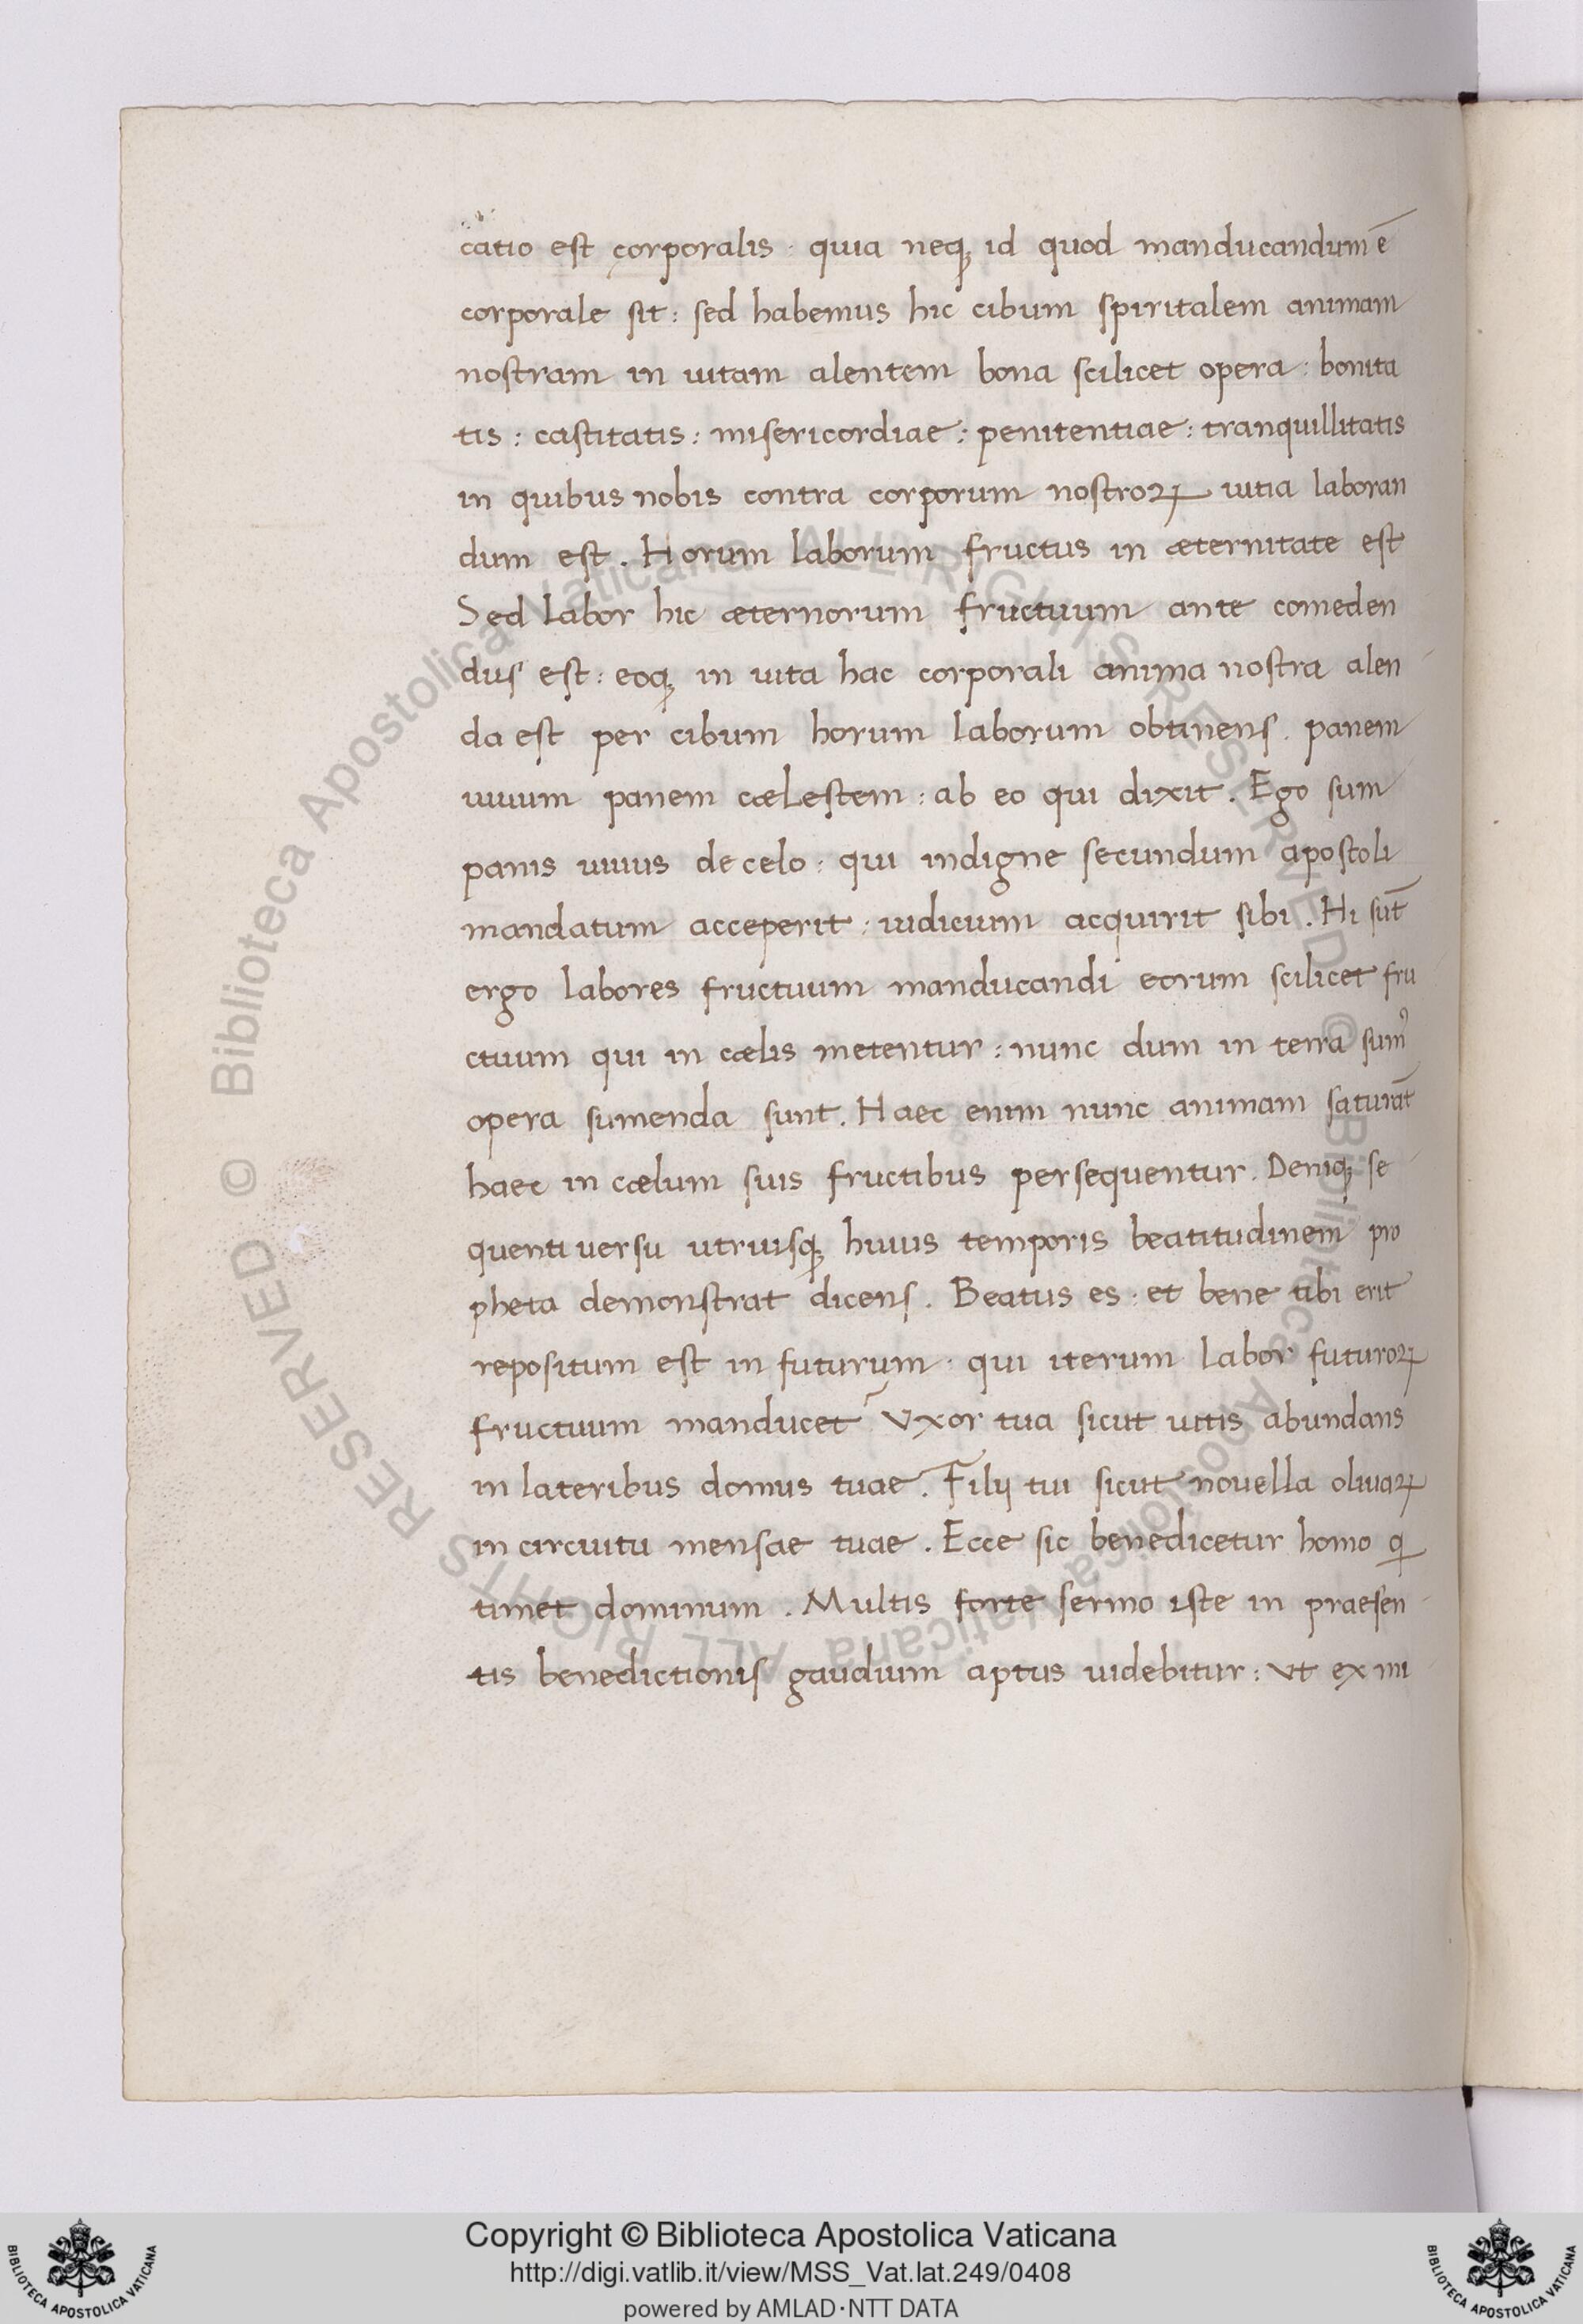 catio est corporalis · quia neqꝫ id quod manducandum ē
corporale sit : sed habemus hic cibum spiritalem animam
nostram in uitam alentem bona scilicet opera : bonita
tis : castitatis : misericordiae : penitentiae : tranquillitatis
in quibus nobis contra corporum nostroꝝ uitia laboran
dum est . Horum laborum fructus in æternitate est
Sed labor hic æternorum fructuum ante comeden
dus est : eoqꝫ in uita hac corporali anima nostra alen
da est per cibum horum laborum obtinens . panem
uiuum panem cælestem : ab eo qui dixit . Ego sum
panis uiuus de celo : qui indigne secundum apostoli
mandatum acceperit : iudicium acquirit sibi . Hi sūt
ergo labores fructuum manducandi eorum scilicet fru
ctuum qui in cælis metentur : nunc dum in terra sumꝰ
opera sumenda sunt . Haec enim nunc animam saturāt
haec in cælum suis fructibus persequentur . Deniqꝫ se
quenti uersu utriusqꝫ huius temporis beatitudinem pro
pheta demonstrat dicens . Beatus es : et bene tibi erit
repositum est in futurum · qui iterum labor futuroꝝ
fructuum manducet Vxor tua sicut uitis abundans
in lateribus domus tuae . Filij tui sicut nouella oliuaꝝ
in circuitu mensae tuae . Ecce sic benedicetur homo ꝗ
timet dominum . Multis forte sermo iste in praesen
tis benedictionis gaudium aptus uidebitur : vt ex mi
Biblioteca Apostolica Vaticana ALL RIGHTS RESERVED © Biblioteca Apostolica Vaticana ALL RIGHTS RESERVED ©
Copyright © Biblioteca Apostolica Vaticana
http://digi.vatlib.it/view/MSS_Vat.lat.249/0408
powered by AMLAD·NTT DATA
BIBLIOTECA APOSTOLICA VATICANA
BIBLIOTECA APOSTOLICA VATICANA